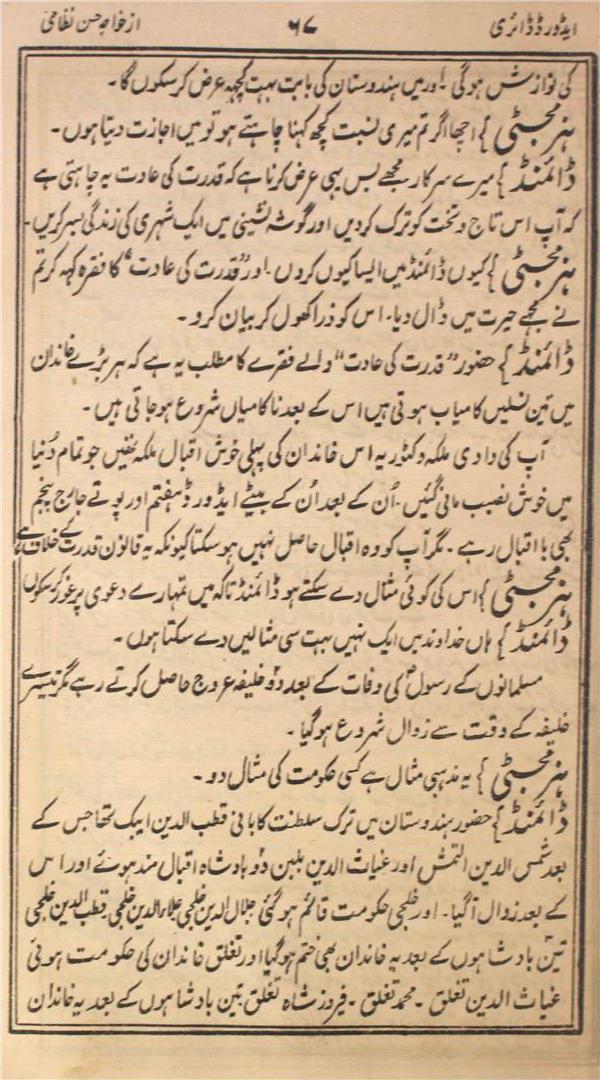 ایڈورڈ ڈائری ۶۷ از خواجہ حسن نظامی
کی نوازش ہوگی۔ اور میں ہندوستان کی بابت بہت کچھہ عرض کرسکوں گا۔
ہز مجسٹی } اچھا اگر تم میری نسبت کچھ کہنا چاہتے ہو تو میں اجازت دیتا ہوں۔
ڈائمنڈ } میرے سرکار مجھے بس یہی عرض کرنا ہے کہ قدرت کی عادت یہ چاہتی ہے
کہ آپ اس تاج و تخت کو ترک کردیں اور گوشہ نشینی میں ایک شہری کی زندگی بسر کریں۔
ہز مجسٹی } کیوں ڈائمنڈ میں ایسا کیوں کروں۔ اور "قدرت کی عادت" کا فقرہ کہہ کر تم
نے مجھے حیرت میں ڈال دیا۔ اس کو ذرا کھول کر بیان کرو۔
ڈائمنڈ } حضور "قدرت کی عادت" والے فقرے کا مطلب یہ ہے کہ ہر بڑے خاندان
میں تین نسلیں کامیاب ہوتی ہیں اس کے بعد ناکامیاں شروع ہوجاتی ہیں۔
آپ کی دادی ملکہ وکٹوریہ اس خاندان کی پہلی خوش اقبال ملکہ تھیں جو تمام دُنیا
میں خوش نصیب مانی گئیں۔ اُن کے بعد اُن کے بیٹے ایڈورڈ ہفتم اور پوتے جارج پنجم
بھی با اقبال رہے۔ مگر آپ کو وہ اقبال حاصل نہیں ہوسکتا کیونکہ یہ قانون قدرت کے خلاف ہے
ہز مجسٹی } اس کی کوئی مثال دے سکتے ہو ڈائمنڈ تاکہ میں تمہارے دعویٰ پر غور کرسکوں
ڈائمنڈ } ہاں خداوند میں ایک نہیں بہت سی مثالیں دے سکتا ہوں۔
مسلمانوں کے رسولؐ کی وفات کے بعد دو خلیفہ عروج حاصل کرتے رہے مگر تیسرے
خلیفہ کے وقت سے زوال شروع ہوگیا۔
ہز مجسٹی } یہ مذہبی مثال ہے کسی حکومت کی مثال دو۔
ڈائمنڈ } حضور ہندوستان میں ترک سلطنت کا بانی قطب الدین ایبک تھا جس کے
بعد شمس الدین التمش اور غیاث الدین بلبن دو بادشاہ اقبال مند ہوئے اور اس
کے بعد زوال آگیا۔ اور خلجی حکومت قائم ہوگئی جلال الدین خلجی علاءالدین خلجی قطب الدین خلجی
تین بادشاہوں کے بعد یہ خاندان بھی ختم ہوگیا اور تغلق خاندان کی حکومت ہوئی
غیاث الدین تغلق۔ محمد تغلق۔ فیروز شاہ تغلق تین بادشاہوں کے بعد یہ خاندان